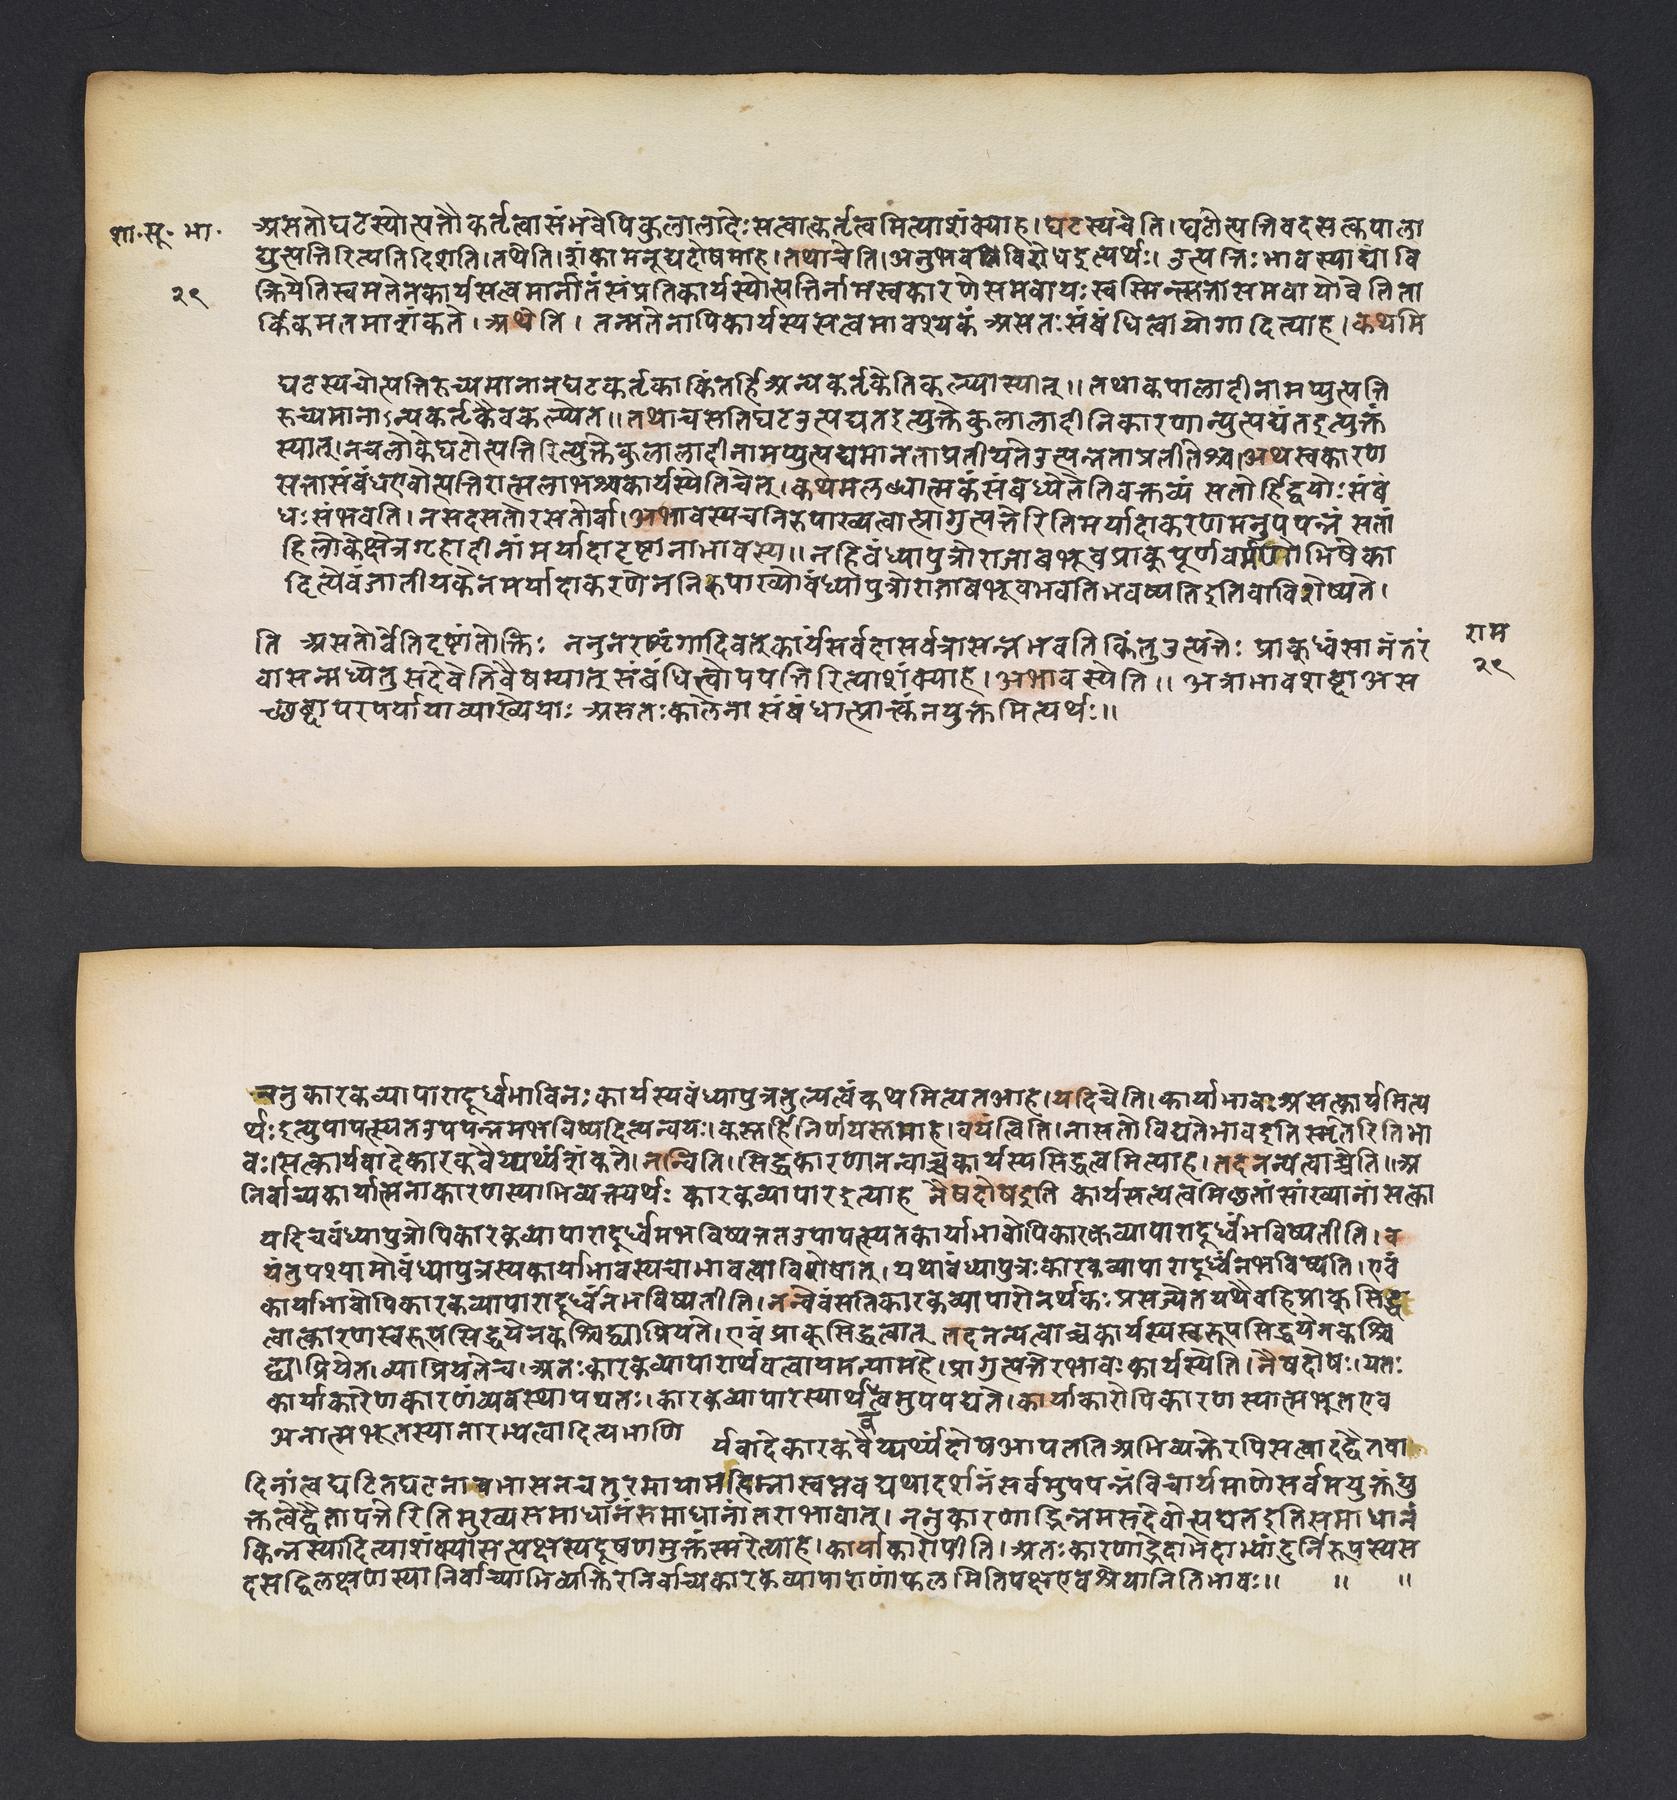 शा॰सू॰भा॰
२९
असतोघटस्योत्पत्तौकर्तृत्वासंभवेपिकुलालादेःसत्वात्कर्तृत्वमित्याशंक्याह।घटस्यचेति।घटोत्पत्तिवदसत्कपाला
द्युत्पत्तिरित्यतिदिशति।तथेति।शंकामनूद्यदोषमाह।तथाचेति।अनुभवविरोधइत्यर्थः।उत्पत्तिःभावस्याद्यावि
क्रियेतिस्वमतेनकार्यसत्वमानीतंसंप्रतिकार्यस्योत्पत्तिर्नामस्वकारणेसमवायःस्वस्मिन्सत्तासमवायोवेतिता
र्किकमतमाशंकते।अथेति। तन्मतेनापिकार्यस्यसत्वमावश्यकं असतःसंबंधित्वायोगादित्याह।कथमि
घटस्यचोत्पत्तिरुच्यमानानघटकर्तृकाकिंतर्हिअन्यकर्तृकेतिकल्प्यास्यात्॥तथाकपालादीनामप्युत्पत्ति
रुच्यमानाऽन्यकर्तृकैवकल्प्येत॥तथाचसतिघटउत्पद्यतइत्युक्तेकुलालादीनिकारणान्युत्पद्यंतइत्युक्तं
स्यात्।नचलोकेघटोत्पत्तिरित्युक्तेकुलालादीनामप्युत्पद्यमानताप्रतीयतेउत्पन्नताप्रतीतेश्च।अथस्वकारण
सत्तासंबंधएवोत्पत्तिरात्मलाभश्चकार्यस्येतिचेत्।कथमलब्धात्मकंसंबध्येतेतिवक्तव्यं सतोर्हिद्वयोःसंबं
धःसंभवति।नसदसतोरसतोर्वा।अभावस्यचनिरुपाख्यत्वात्प्रागुत्पत्तेरितिमर्यादाकरणमनुपपन्नं सतां
हिलोकेक्षेत्रगृहादीनांमर्यादादृष्टानाभावस्य॥नहिवंध्यापुत्रोराजाबभूवप्राक्पूर्णवर्मणोभिषेका
दित्येवंजातीयकेनमर्यादाकरणेननिरुपाख्योवंध्यापुत्रोराजाबभूवभवतिभवष्यतिइतिवाविशेष्यते।
ति असतोर्वेतिदृष्टांतोक्तिः ननुनरशृंगादिवत्कार्यंसर्वदासर्वत्रासन्नभवतिकिंतुउत्पत्तेः प्राक्ध्वंसानंतरं
वासन्मध्येतुसदेवेतिवैषम्यात्संबंधित्वोपपत्तिरित्याशंक्याह।अभावस्येति॥ अत्राभावशब्दाअस
च्छब्दापरपर्यायाव्याख्येयाः असतःकालेनासंबंधात्प्राक्त्वंनयुक्तमित्यर्थः॥
राम
२९
ननुकारकव्यापारादूर्ध्वभाविनःकार्यस्यवंध्यापुत्रतुल्यत्वंकथमित्यतआह।यदिचेति।कार्याभावःअसत्कार्यमित्य
र्थःइत्युपापत्स्यतउपपन्नमभविष्यदित्यन्वयः।कस्तर्हिनिर्णयस्तमाह।वयंत्विति।नासतोविद्यतेभावइतिस्मृतेरितिभा
वः।सत्कार्यवादेकारकवैयर्थ्यंशंकते।नन्विति।।सिद्धकारणानन्यत्वाच्चकार्यस्यसिद्धत्वमित्याह।तदनन्यत्वाच्चेति॥अ
निर्वाच्यकार्यात्मनाकारणस्याभिव्यक्त्यर्थः कारकव्यापारइत्याह नैषदोषइति कार्यसत्यत्वमिच्छतांसांख्यानांसत्का
यदिचवंध्यापुत्रोपिकारकव्यापारादूर्ध्वमभविष्यत्ततउपापत्स्यतकार्याभावोपिकारकव्यापारादूर्ध्वंभविष्यतीति।व
यंतुपश्यामोवंध्यापुत्रस्यकार्याभावस्यचाभावत्वाविशेषात्।यथावंध्यापुत्रःकारकव्यापारादूर्ध्वंनभविष्यति।एवं
कार्याभावोपिकारकव्यापारादूर्ध्वंनभविष्यतीति।नन्वेवंसतिकारकव्यापारोनर्थकःप्रसज्येतयथैवहिप्राक्सिद्ध
त्वात्कारणस्वरूपसिद्धयेनकश्चिद्व्याप्रियते।एवंप्राक्सिद्धत्वात् तदनन्यत्वाच्चकार्यस्यस्वरूपसिद्धयेनकश्चि
द्व्याप्रियेत।व्याप्रियतेच।अतःकारकव्यापारार्थवत्वायमन्यामहे।प्रागुत्पत्तेरभावःकार्यस्येति।नैषदोषः।यतः
कार्याकारेणकारणंव्यवस्थापयतः।कारकव्यापारस्यार्थवत्वमुपपद्यते।कार्याकारोपिकारणस्यात्मभूतएव
अनात्मभूतस्यानारभ्यत्वादित्यभाणि
र्यवादेकारकवैय्यर्थ्यंदोषआपततिअभिव्यक्तेरपिसत्वादद्वैतवा
दिनांत्वघटितघटनावभासनचतुरमायामहिम्नास्वप्नवद्यथादर्शनंसर्वमुपपन्नंविचार्यमाणेसर्वमयुक्तंयु
क्तत्वेद्वैतापत्तेरितिमुख्यसमाधानंसमाधानांतराभावात्। ननुकारणाद्भिन्नमसदेवोत्पद्यतइतिसमाधानं
किन्नस्यादित्याशंक्यासत्पक्षस्यदूषणमुक्तंस्मरेत्याह।कार्याकारोपीति।अतःकारणाद्भेदाभेदाभ्यांदुर्निरूपस्यस
दसद्विलक्षणस्यानिर्वाच्याभिव्यक्तिरनिर्वाच्यकारकव्यापाराणांफलमितिपक्षएवश्रेयानितिभावः॥ ॥ ॥